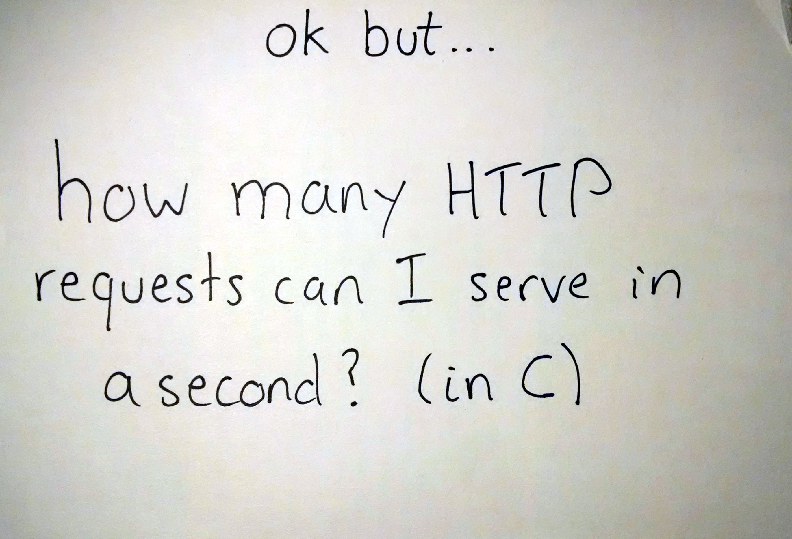 ok but...
how many HTTP
requests can I serve in
a second? (in C)